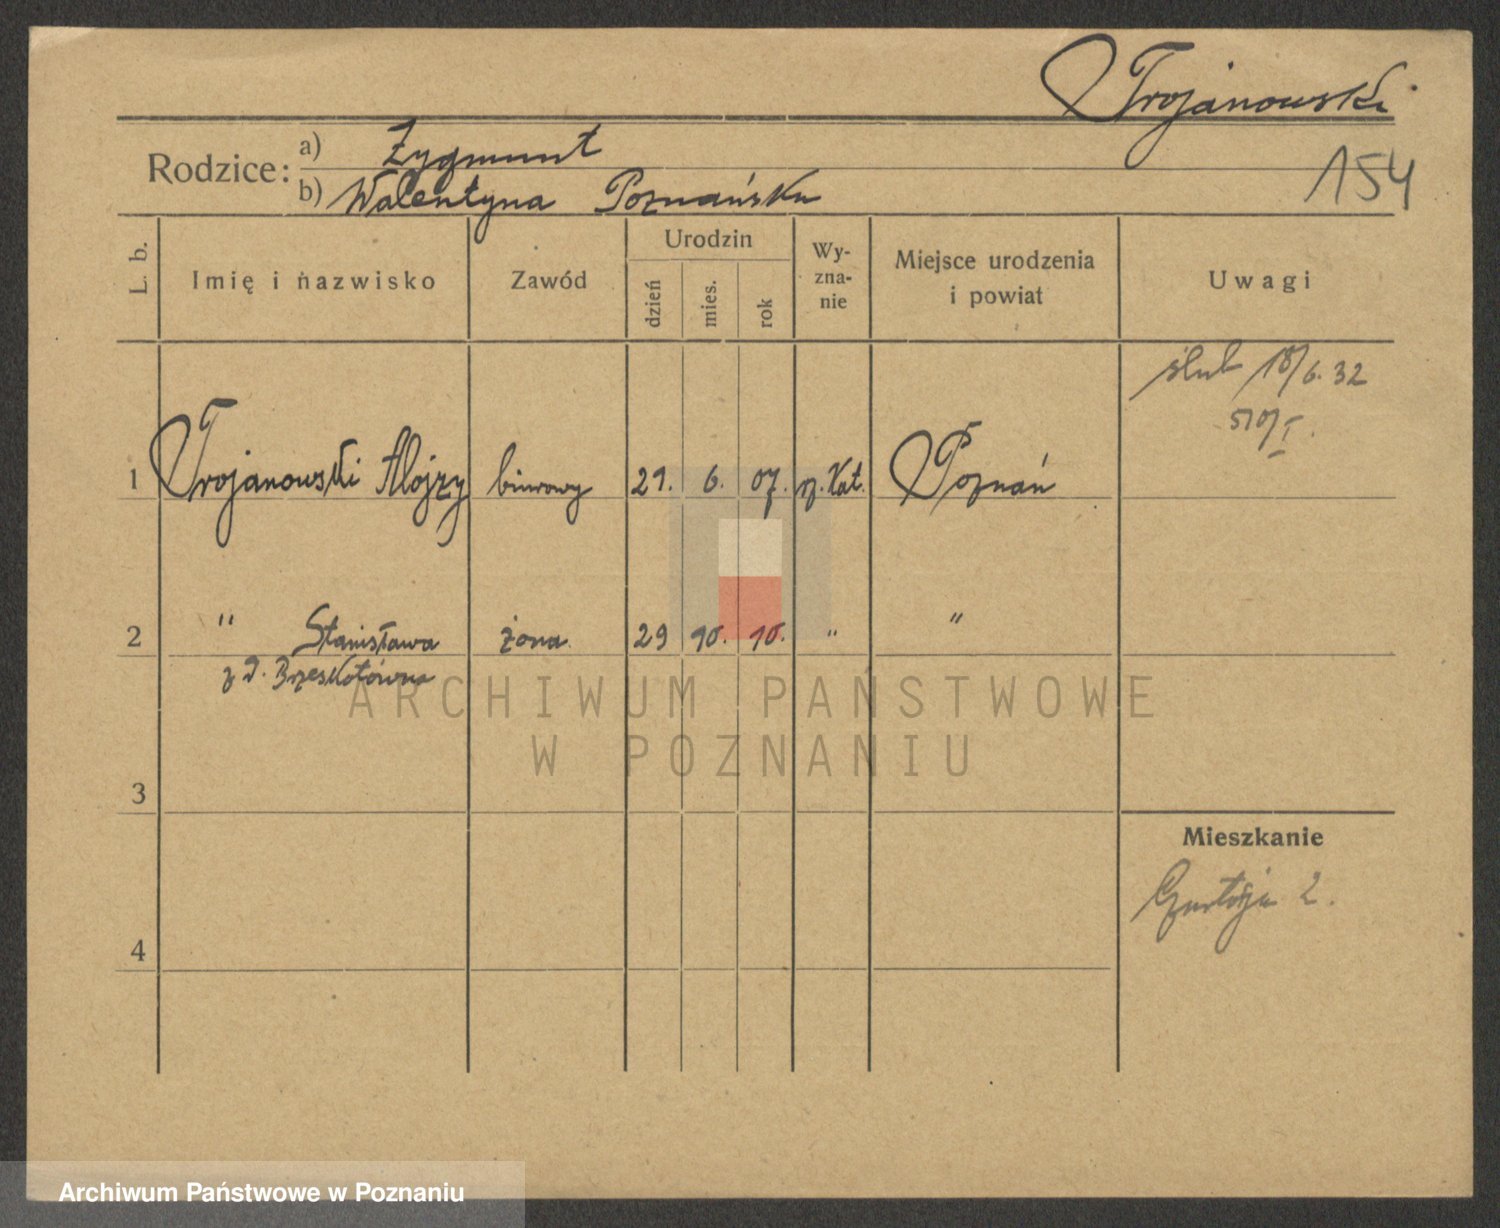 Trojanowski
Rodzice: a) Zygmunt
b) Walentyna Poznańska
154
L. b. Imię i nazwisko Zawód Urodzin dzień mies. rok Wy-zna-nie Miejsce urodzenia i powiat Uwagi
ślub 18/6. 32
510/I.
1 Trojanowski Alojzy biurowy 21. 6. 07. rz. Kat. Poznań
2 " Stanisława żona 29 10. 10. " "
z d. Brzeskotówna
ARCHIWUM PAŃSTWOWE
W POZNANIU
3
Mieszkanie
2.
4
Archiwum Państwowe w Poznaniu